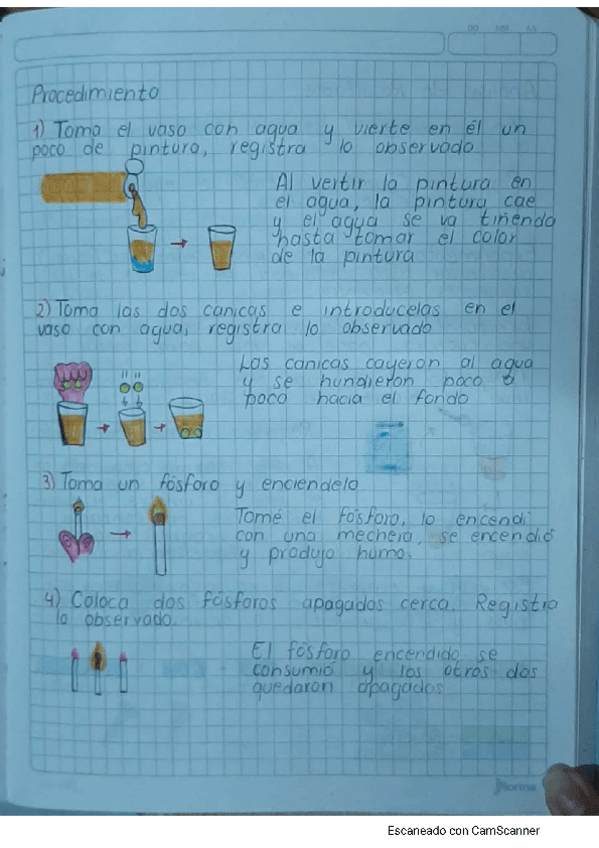 DD MM AA
Procedimiento
1) Toma el vaso con agua y vierte en él un
poco de pintura, registra lo observado
Al vertir la pintura en
el agua, la pintura cae
y el agua se va tiñendo
hasta tomar el color
de la pintura
2) Toma las dos canicas e introducelas en el
vaso con agua, registra lo observado
Las canicas cayeron al agua
y se hundieron poco a
poco hacia el fondo
3) Toma un fósforo y enciendelo
Tomé el fósforo, lo encendí
con una mechera, se encendió
y produjo humo.
4) Coloca dos fósforos apagados cerca. Registra
lo observado.
El fósforo encendido se
consumió y los otros dos
quedaron apagados
Norma
Escaneado con CamScanner